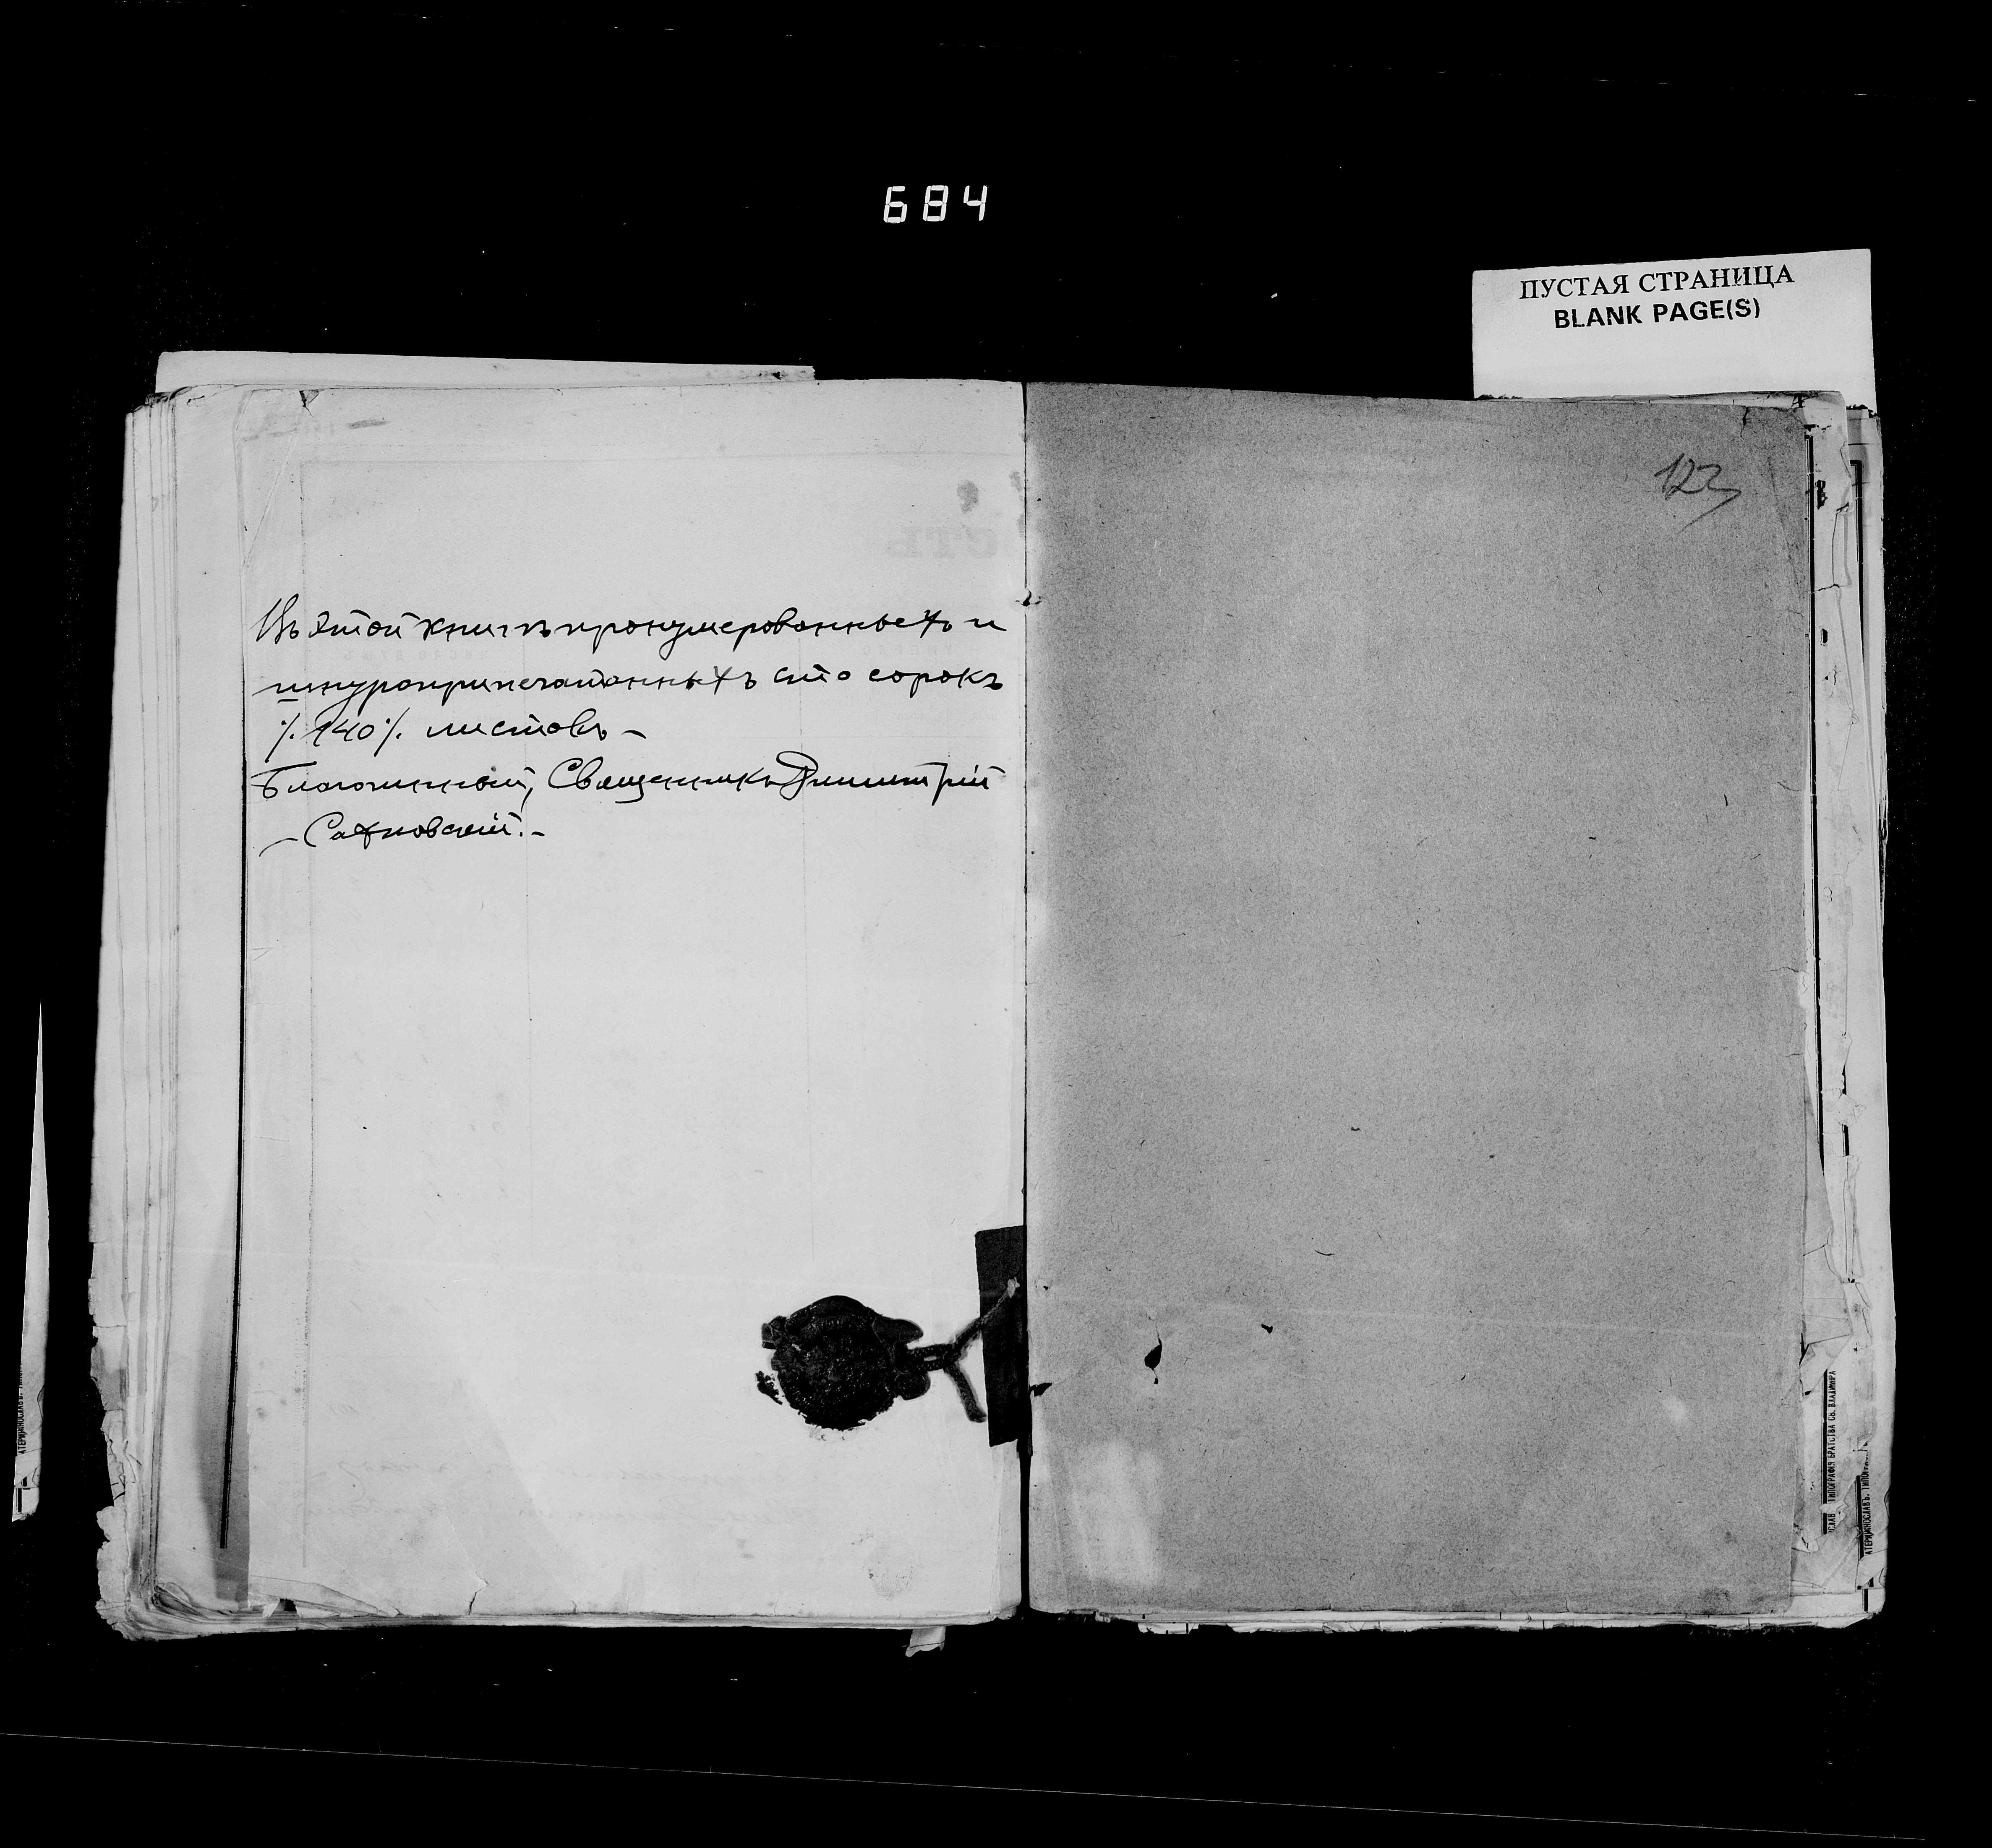 684
ПУСТАЯ СТРАНИЦА
BLANK PAGE(S)
123
Въ этой книгѣ пронумерованныхъ и
шнуроприпечатанныхъ сто сорокъ
/. 140 /. листовъ –
Благочинный, Священникъ Димитрій
– Сахновскій. –
ТИПОГРАФІЯ БРАТСТВА СВ. ВЛАДИМІРА